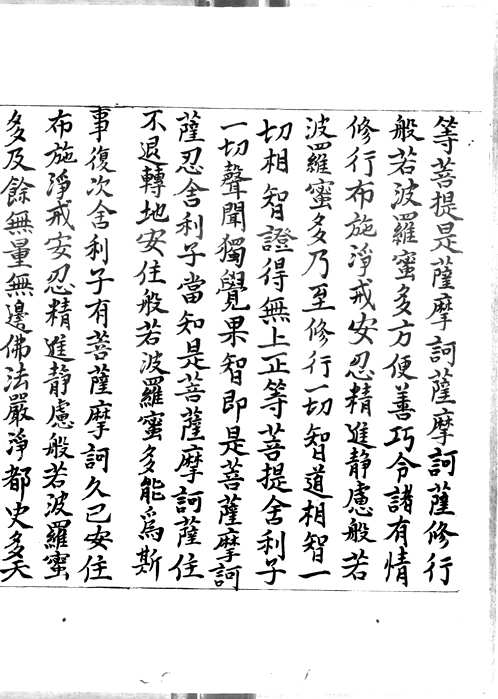 等菩提是薩摩訶薩摩訶薩修行
般若波羅蜜多方便善巧令諸有情
修行布施淨戒安忍精進靜慮般若
波羅蜜多乃至修行一切智道相智一
切相智證得無上正等菩提舍利子
一切聲聞獨覺果智即是菩薩摩訶
薩忍舍利子當知是菩薩摩訶薩住
不退轉地安住般若波羅蜜多能爲斯
事復次舍利子有菩薩摩訶久已安住
布施淨戒安忍精進靜慮般若波羅蜜
多及餘無量無邊佛法嚴淨都史多天